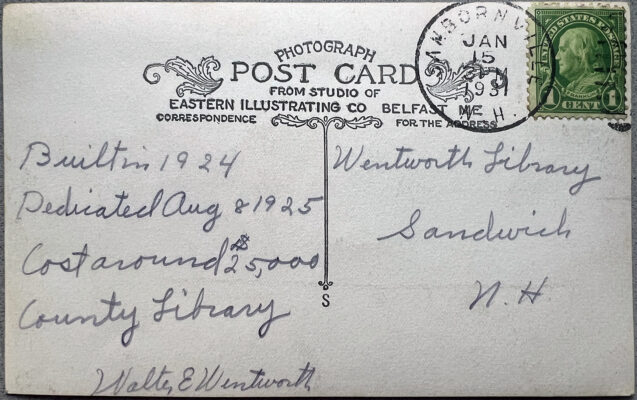 PHOTOGRAPH
POST CARD
FROM STUDIO OF
EASTERN ILLUSTRATING CO BELFAST ME
CORRESPONDENCE
FOR THE ADDRESS
SANBORNVILLE
JAN
15
1931
N. H.
UNITED STATES POSTAGE
FRANKLIN
1 CENT 1
Built in 1924
Dedicated Aug 8 1925
Cost around $25,000
County Library
Walter E Wentworth
Wentworth Library
Sandwich
N. H
S